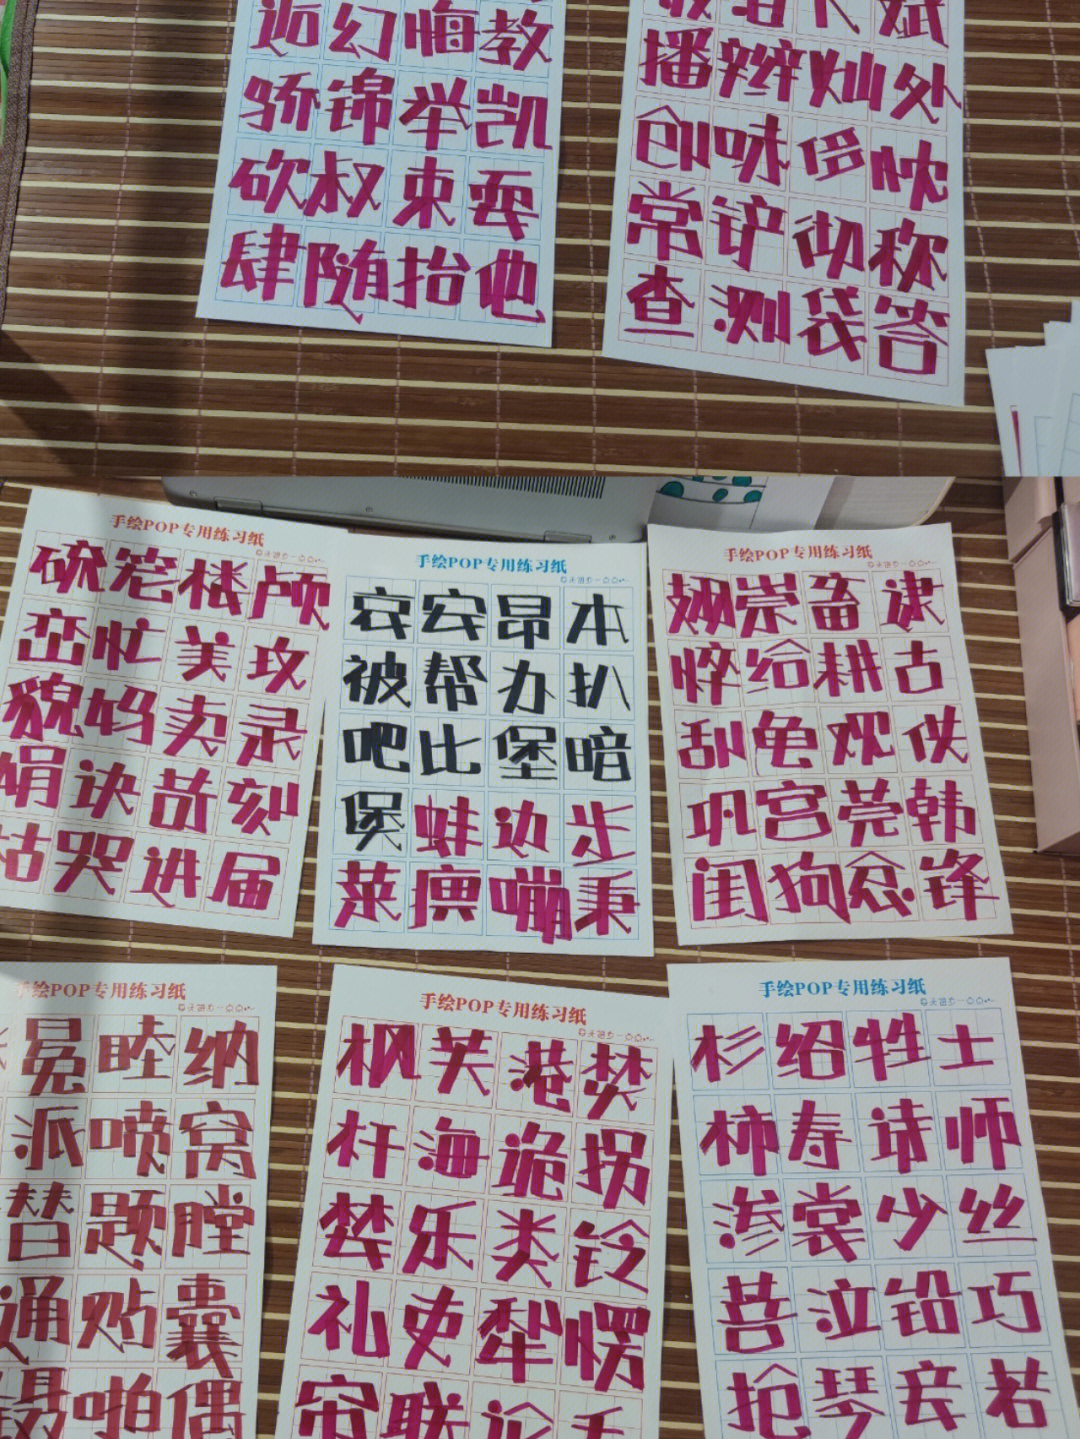 幻 悔 教
骄 锦 举 凯
砍 叔 束 耍
肆 随 抬 他
斌
播 辫 灿 外
创 味 侈 忱
常 铲 彻 称
查 测 袋 答
手绘POP专用练习纸
硫 笼 楼 颅
峦 忙 美 攻
貌 妈 卖 录
娟 诀 苛 刻
枯 哭 进 届
手绘POP专用练习纸
哀 安 昂 本
被 帮 办 扒
吧 比 堡 暗
煲 蛙 边 步
菜 赓 嘣 秉
手绘POP专用练习纸
翅 崇 畜 逮
悴 给 耕 古
刮 龟 观 仗
巩 宫 莞 韩
闺 狗 锋
手绘POP专用练习纸
冕 睦 纳
派 喷 窝
替 题 膛
通 贴 囊
摄 啪 偶
手绘POP专用练习纸
枫 芙 港 焚
杆 海 诡 拐
婪 乐 类 铃
礼 吏 犁 愣
帘 联 论
手绘POP专用练习纸
杉 绍 牲 士
柿 寿 诗 师
渗 裳 少 丝
莒 泣 铅 巧
抢 琴 丧 若